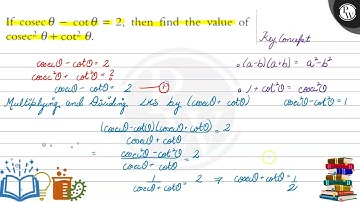 If cosec θ − cot θ = 2, then find the value of
cosec² θ + cot² θ.
Key Concept
cosecθ − cotθ = 2
cosec²θ + cot²θ = ?
cosecθ − cotθ = 2 —— ①
• (a-b)(a+b) = a²-b²
• 1 + cot²θ = cosec²θ
cosec²θ - cot²θ = 1
Multiplying and Dividing LHS by (cosecθ + cotθ)
(cosecθ - cotθ)(cosecθ + cotθ) / cosecθ + cotθ = 2
= cosec²θ - cot²θ / cosecθ + cotθ = 2
1 / cosecθ + cotθ = 2 ⇒ cosecθ + cotθ = 1/2